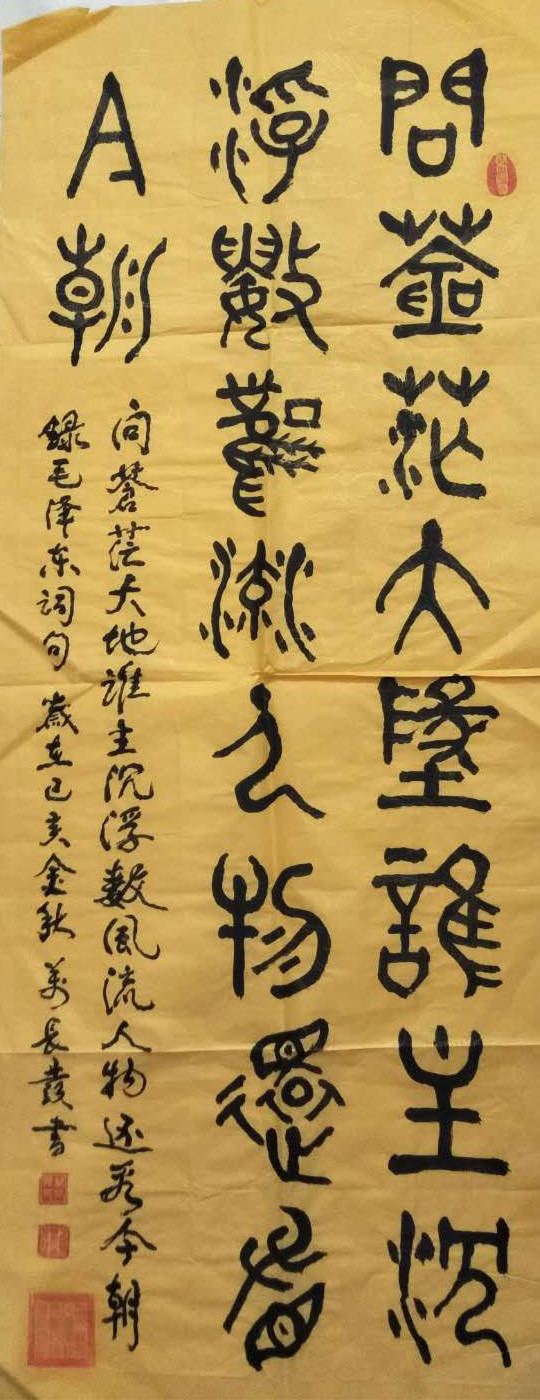 問蒼茫大墬誰主沉
浮數風流人物還看
今朝
问蒼茫大地誰主沉浮数風流人物还看今朝
録毛泽东词句 歲在己亥金秋 萬長發書